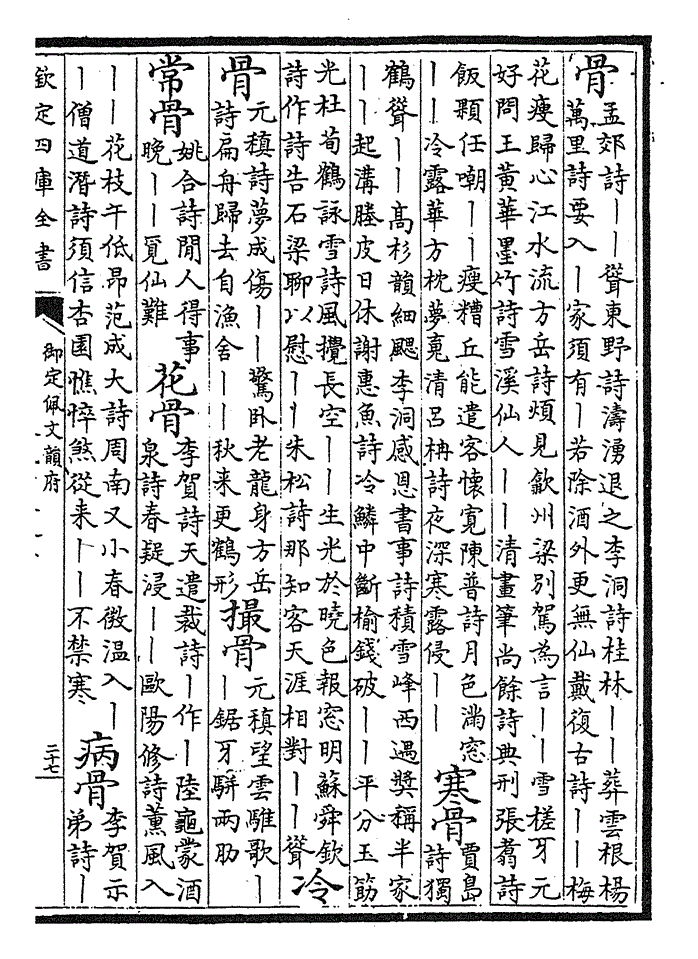 骨
孟郊詩丨丨聳東野詩濤湧退之李洞詩桂林丨丨葬雲根楊
萬里詩要入丨家須有丨若除酒外更無仙戴復古詩丨丨梅
花瘦歸心江水流方岳詩煩見歙州梁別駕為言丨丨雪槎牙元
好問王黃華墨竹詩雪溪仙人丨丨清畫筆尚餘詩典刑張翥詩
飯顆任嘲丨丨瘦糟丘能遣客懷寛陳普詩月色滿窓
丨丨冷露華方枕夢清吕柟詩夜深寒露侵丨丨
寒骨
賈島
詩獨
鶴聳丨丨高杉韻細颸李洞感恩書事詩積雪峰西遇奬稱半家
丨丨起溝塍皮日休謝惠魚詩冷鱗中斷榆錢破丨丨平分玉筯
光杜荀鶴詠雪詩風攪長空丨丨生光於曉色報窓明蘇舜欽
詩作詩告石梁聊以慰丨丨朱松詩那知客天涯相對丨丨聳
冷
骨
元稹詩夢成傷丨丨驚卧老龍身方岳
詩扁舟歸去自漁舍丨丨秋来更鶴形
撮骨
元稹望雲騅歌丨
丨鋸牙駢兩肋
常骨
姚合詩閒人得事
晚丨丨覓仙難
花骨
李賀詩天遣裁詩丨作丨陸龜蒙酒
泉詩春疑浸丨丨歐陽修詩薰風入
丨丨花枝午低昂范成大詩周南又小春微温入丨
丨僧道潛詩須信杏園憔悴煞從来丨丨不禁寒
病骨
李賀示
弟詩丨
欽定四庫全書
御定佩文韻府
二十七